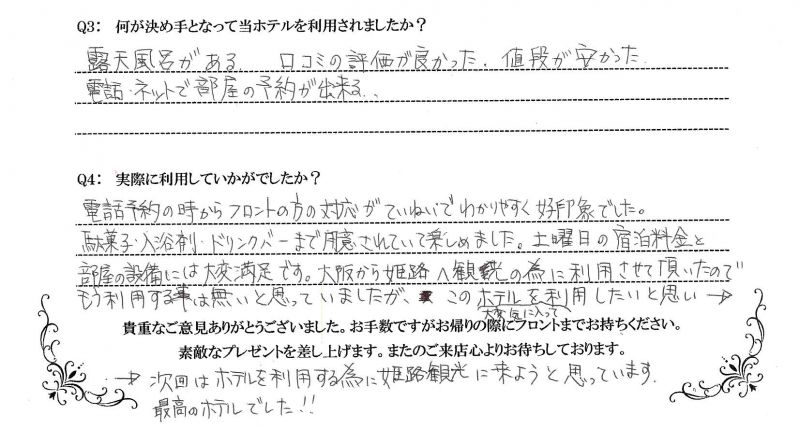 Q3: 何が決め手となって当ホテルを利用されましたか?
露天風呂がある、口コミの評価が良かった、値段が安かった
電話・ネットで部屋の予約が出来る、
Q4: 実際に利用していかがでしたか?
電話予約の時からフロントの方の対応がていねいでわかりやすく好印象でした。
駄菓子・入浴剤・ドリンクバーまで用意されていて楽しめました。土曜日の宿泊料金と
部屋の設備には大変満足です。大阪から姫路へ観光の為に利用させて頂いたので
もう利用する事は無いと思っていましたが、このホテルを利用したいと思い→
大変気に入って
貴重なご意見ありがとうございました。お手数ですがお帰りの際にフロントまでお持ちください。
素敵なプレゼントを差し上げます。またのご来店心よりお待ちしております。
→次回はホテルを利用する為に姫路観光に来ようと思っています。
最高のホテルでした!!